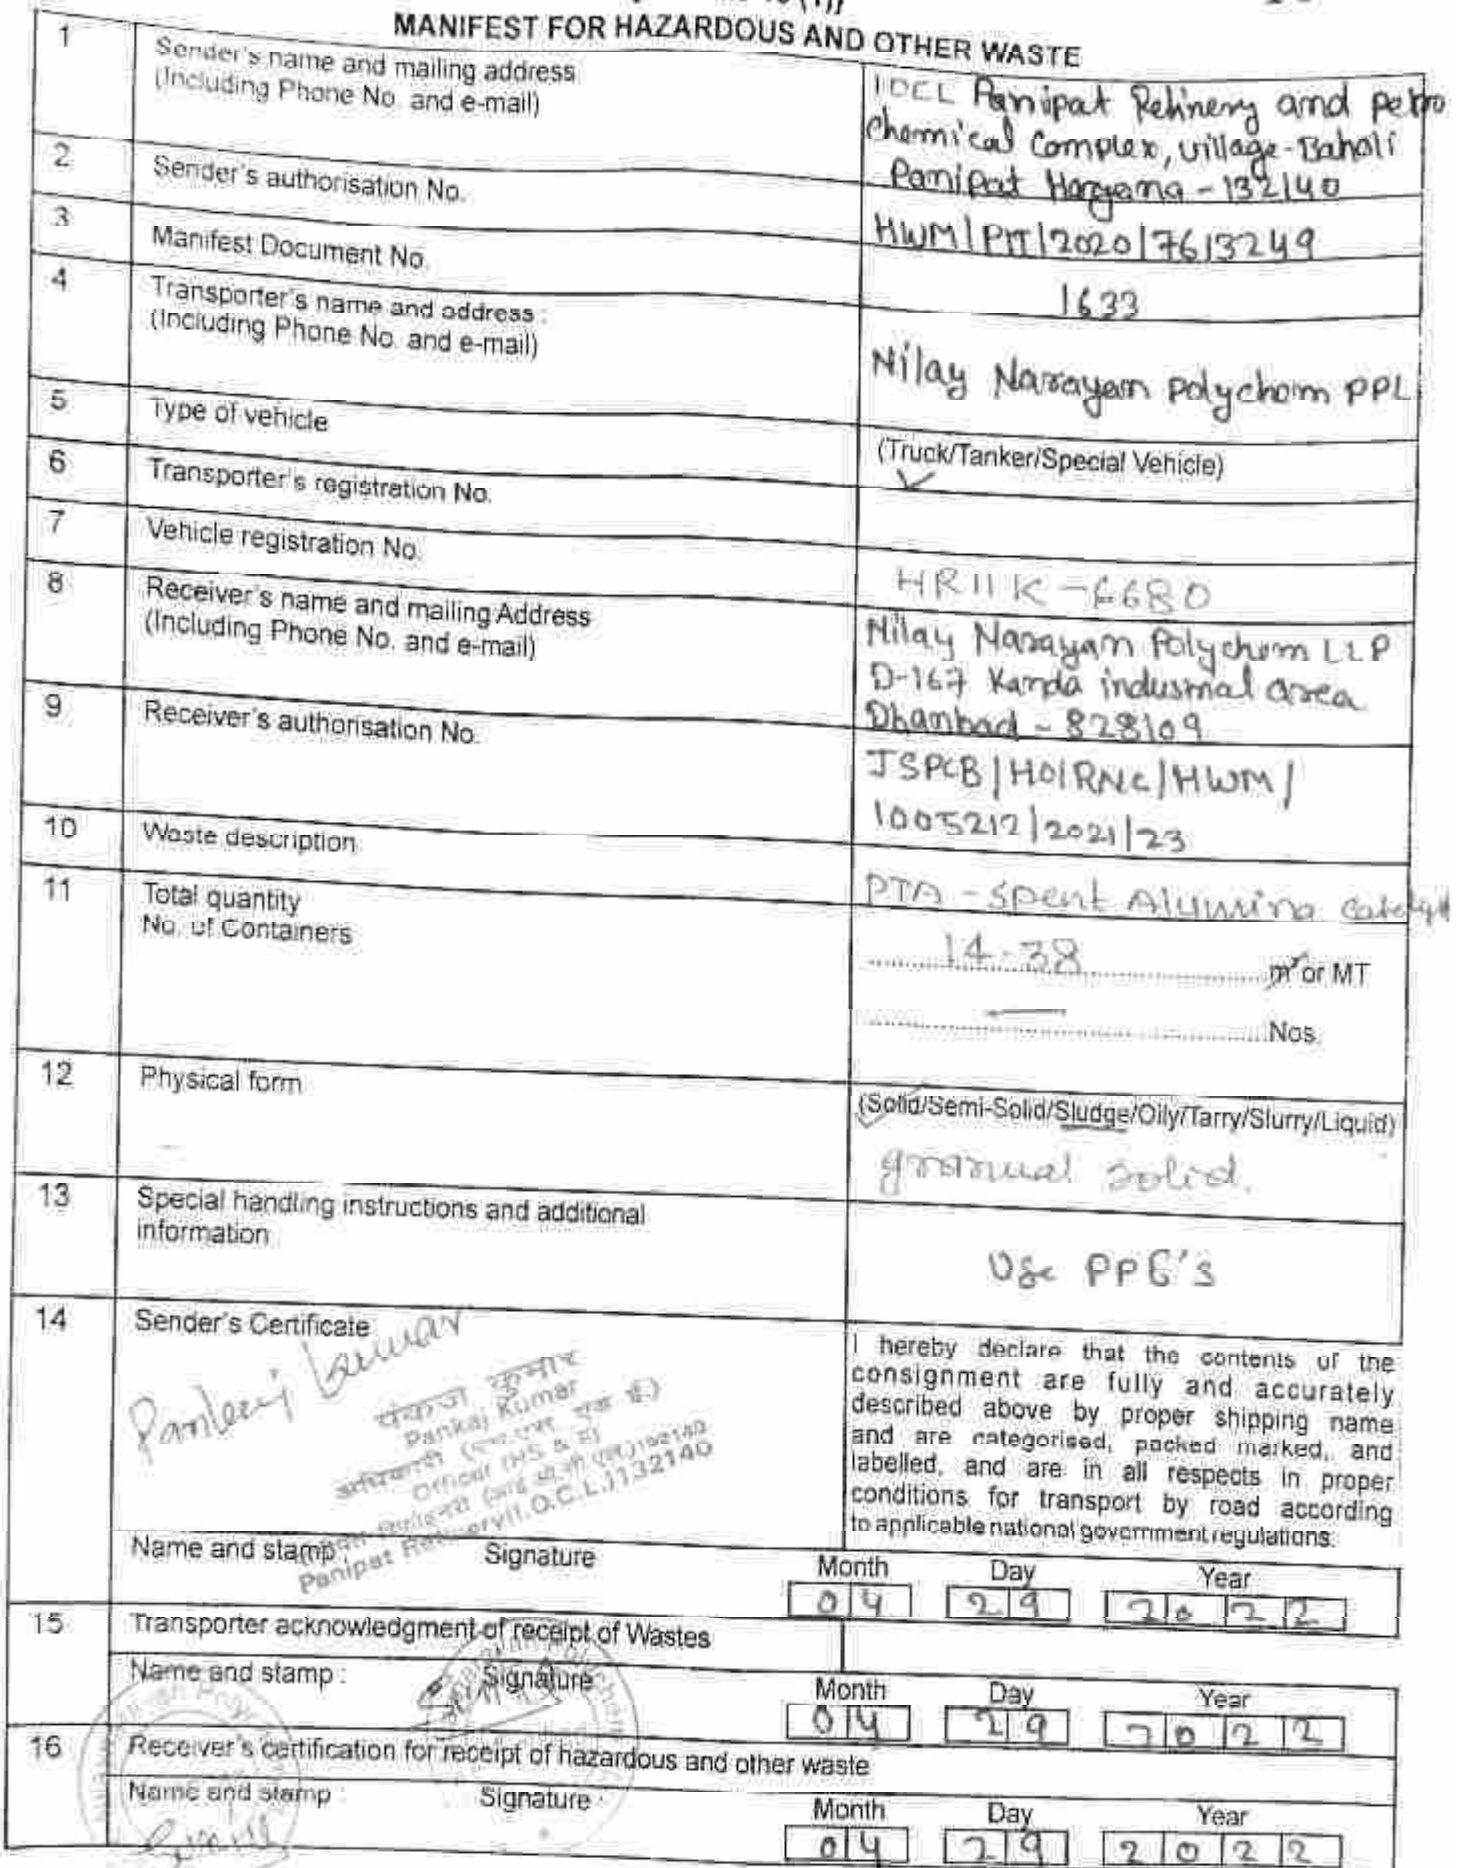 MANIFEST FOR HAZARDOUS AND OTHER WASTE
1 Sender's name and mailing address
(Including Phone No. and e-mail)
IOCL Panipat Refinery and petro
chemical Complex, village-Baholi
Panipat Haryana - 132140
2 Sender's authorisation No.
HWM/PIT/2020/7613249
3 Manifest Document No.
1633
4 Transporter's name and address :
(Including Phone No. and e-mail)
Nilay Narayan polychem PPL
5 Type of vehicle
(Truck/Tanker/Special Vehicle)
6 Transporter's registration No.
7 Vehicle registration No.
HR11K-6680
8 Receiver's name and mailing Address
(Including Phone No. and e-mail)
Nilay Narayan Polychem LLP
D-167 Kanda industrial area
Dhanbad - 828109
9 Receiver's authorisation No.
JSPCB/HO/RNC/HWM/
1005212/2021/23
10 Waste description
PTA - Spent Alumina catalyst
11 Total quantity
No. of Containers
14-38 m³ or MT
Nos.
12 Physical form
(Solid/Semi-Solid/Sludge/Oily/Tarry/Slurry/Liquid)
solid.
13 Special handling instructions and additional
information
Use PPE's
14 Sender's Certificate
Pankaj Kumar
पंकज कुमार
Pankaj Kumar
Officer (HS & E)
Panipat Refinery(I.O.C.L.)132140
I hereby declare that the contents of the
consignment are fully and accurately
described above by proper shipping name
and are categorised, packed marked, and
labelled, and are in all respects in proper
conditions for transport by road according
to applicable national government regulations.
Name and stamp Signature Month Day Year
04 29 2022
15 Transporter acknowledgment of receipt of Wastes
Name and stamp : Signature Month Day Year
04 29 2022
16 Receiver's certification for receipt of hazardous and other waste
Name and stamp : Signature : Month Day Year
04 29 2022